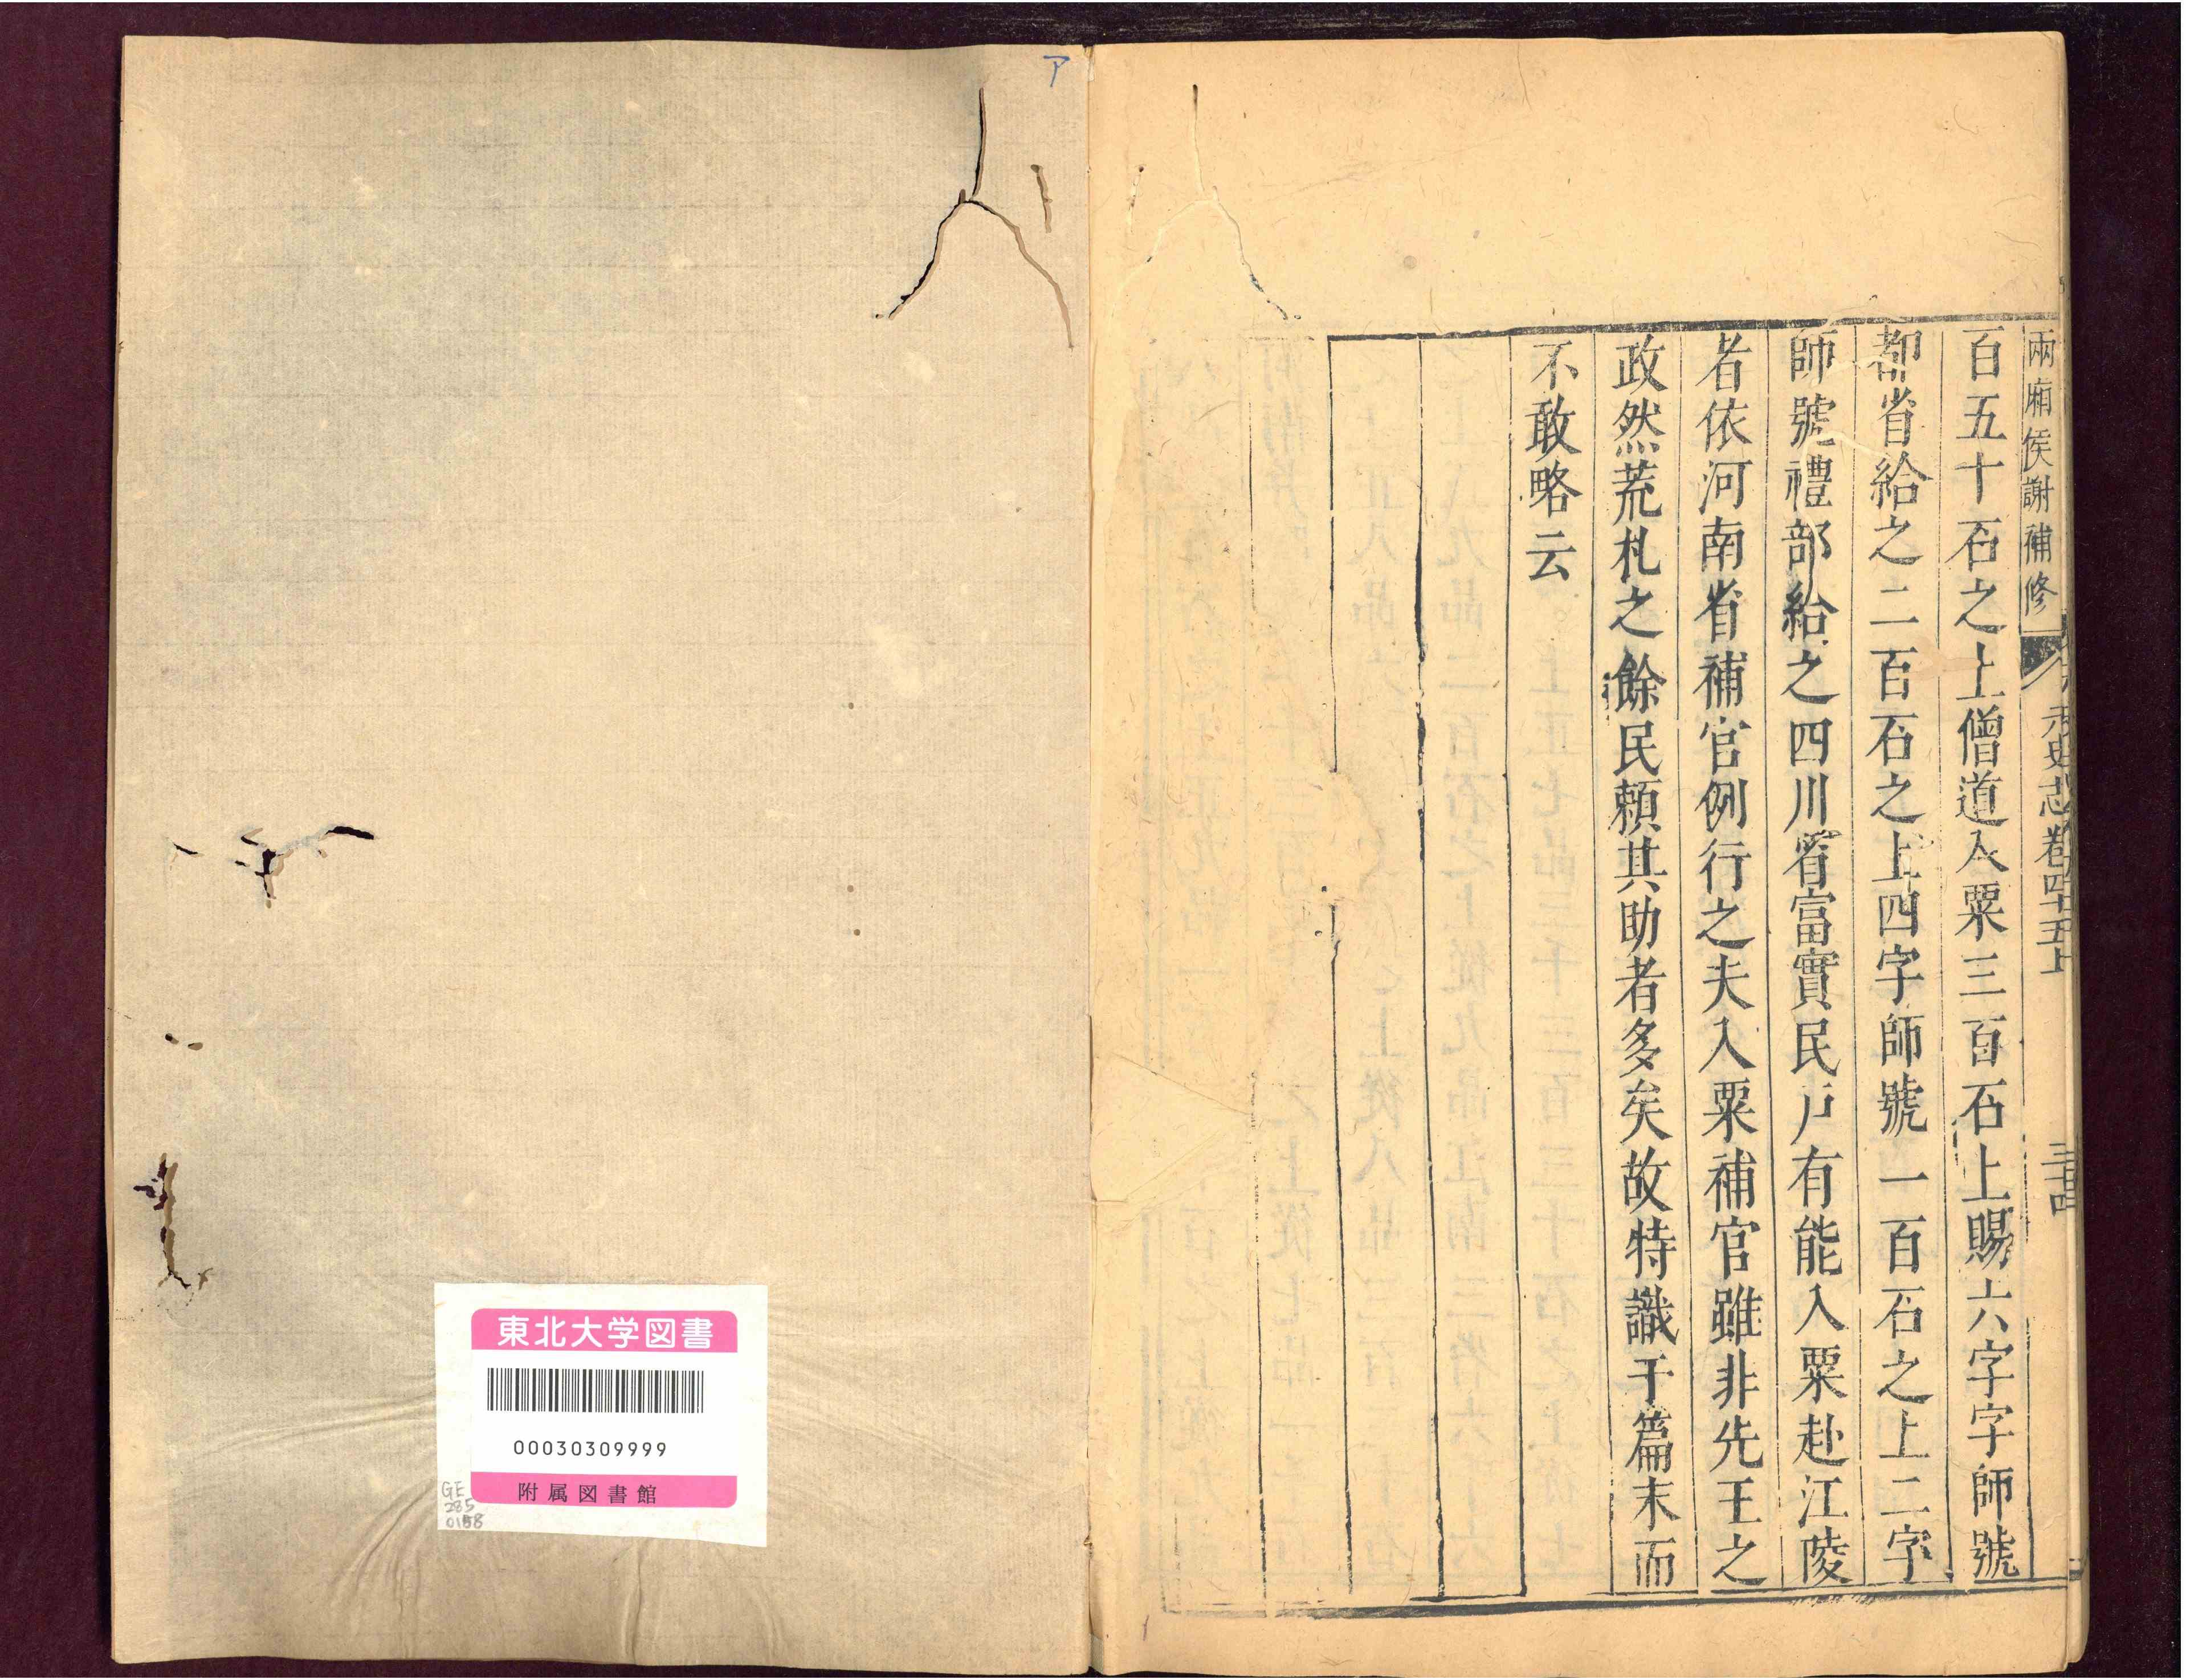 兩廂侯謝補修
元史志卷四十五上
三十四
百五十石之上僧道入粟三百石上賜六字字師號
都省給之二百石之上四字師號一百石之上二字
師號禮部給之四川省富實民戶有能入粟赴江陵
者依河南省補官例行之夫入粟補官雖非先王之
政然荒札之餘民賴其助者多矣故特識于篇末而
不敢略云
ア
東北大学図書
00030309999
附属図書館
GE
285
0158